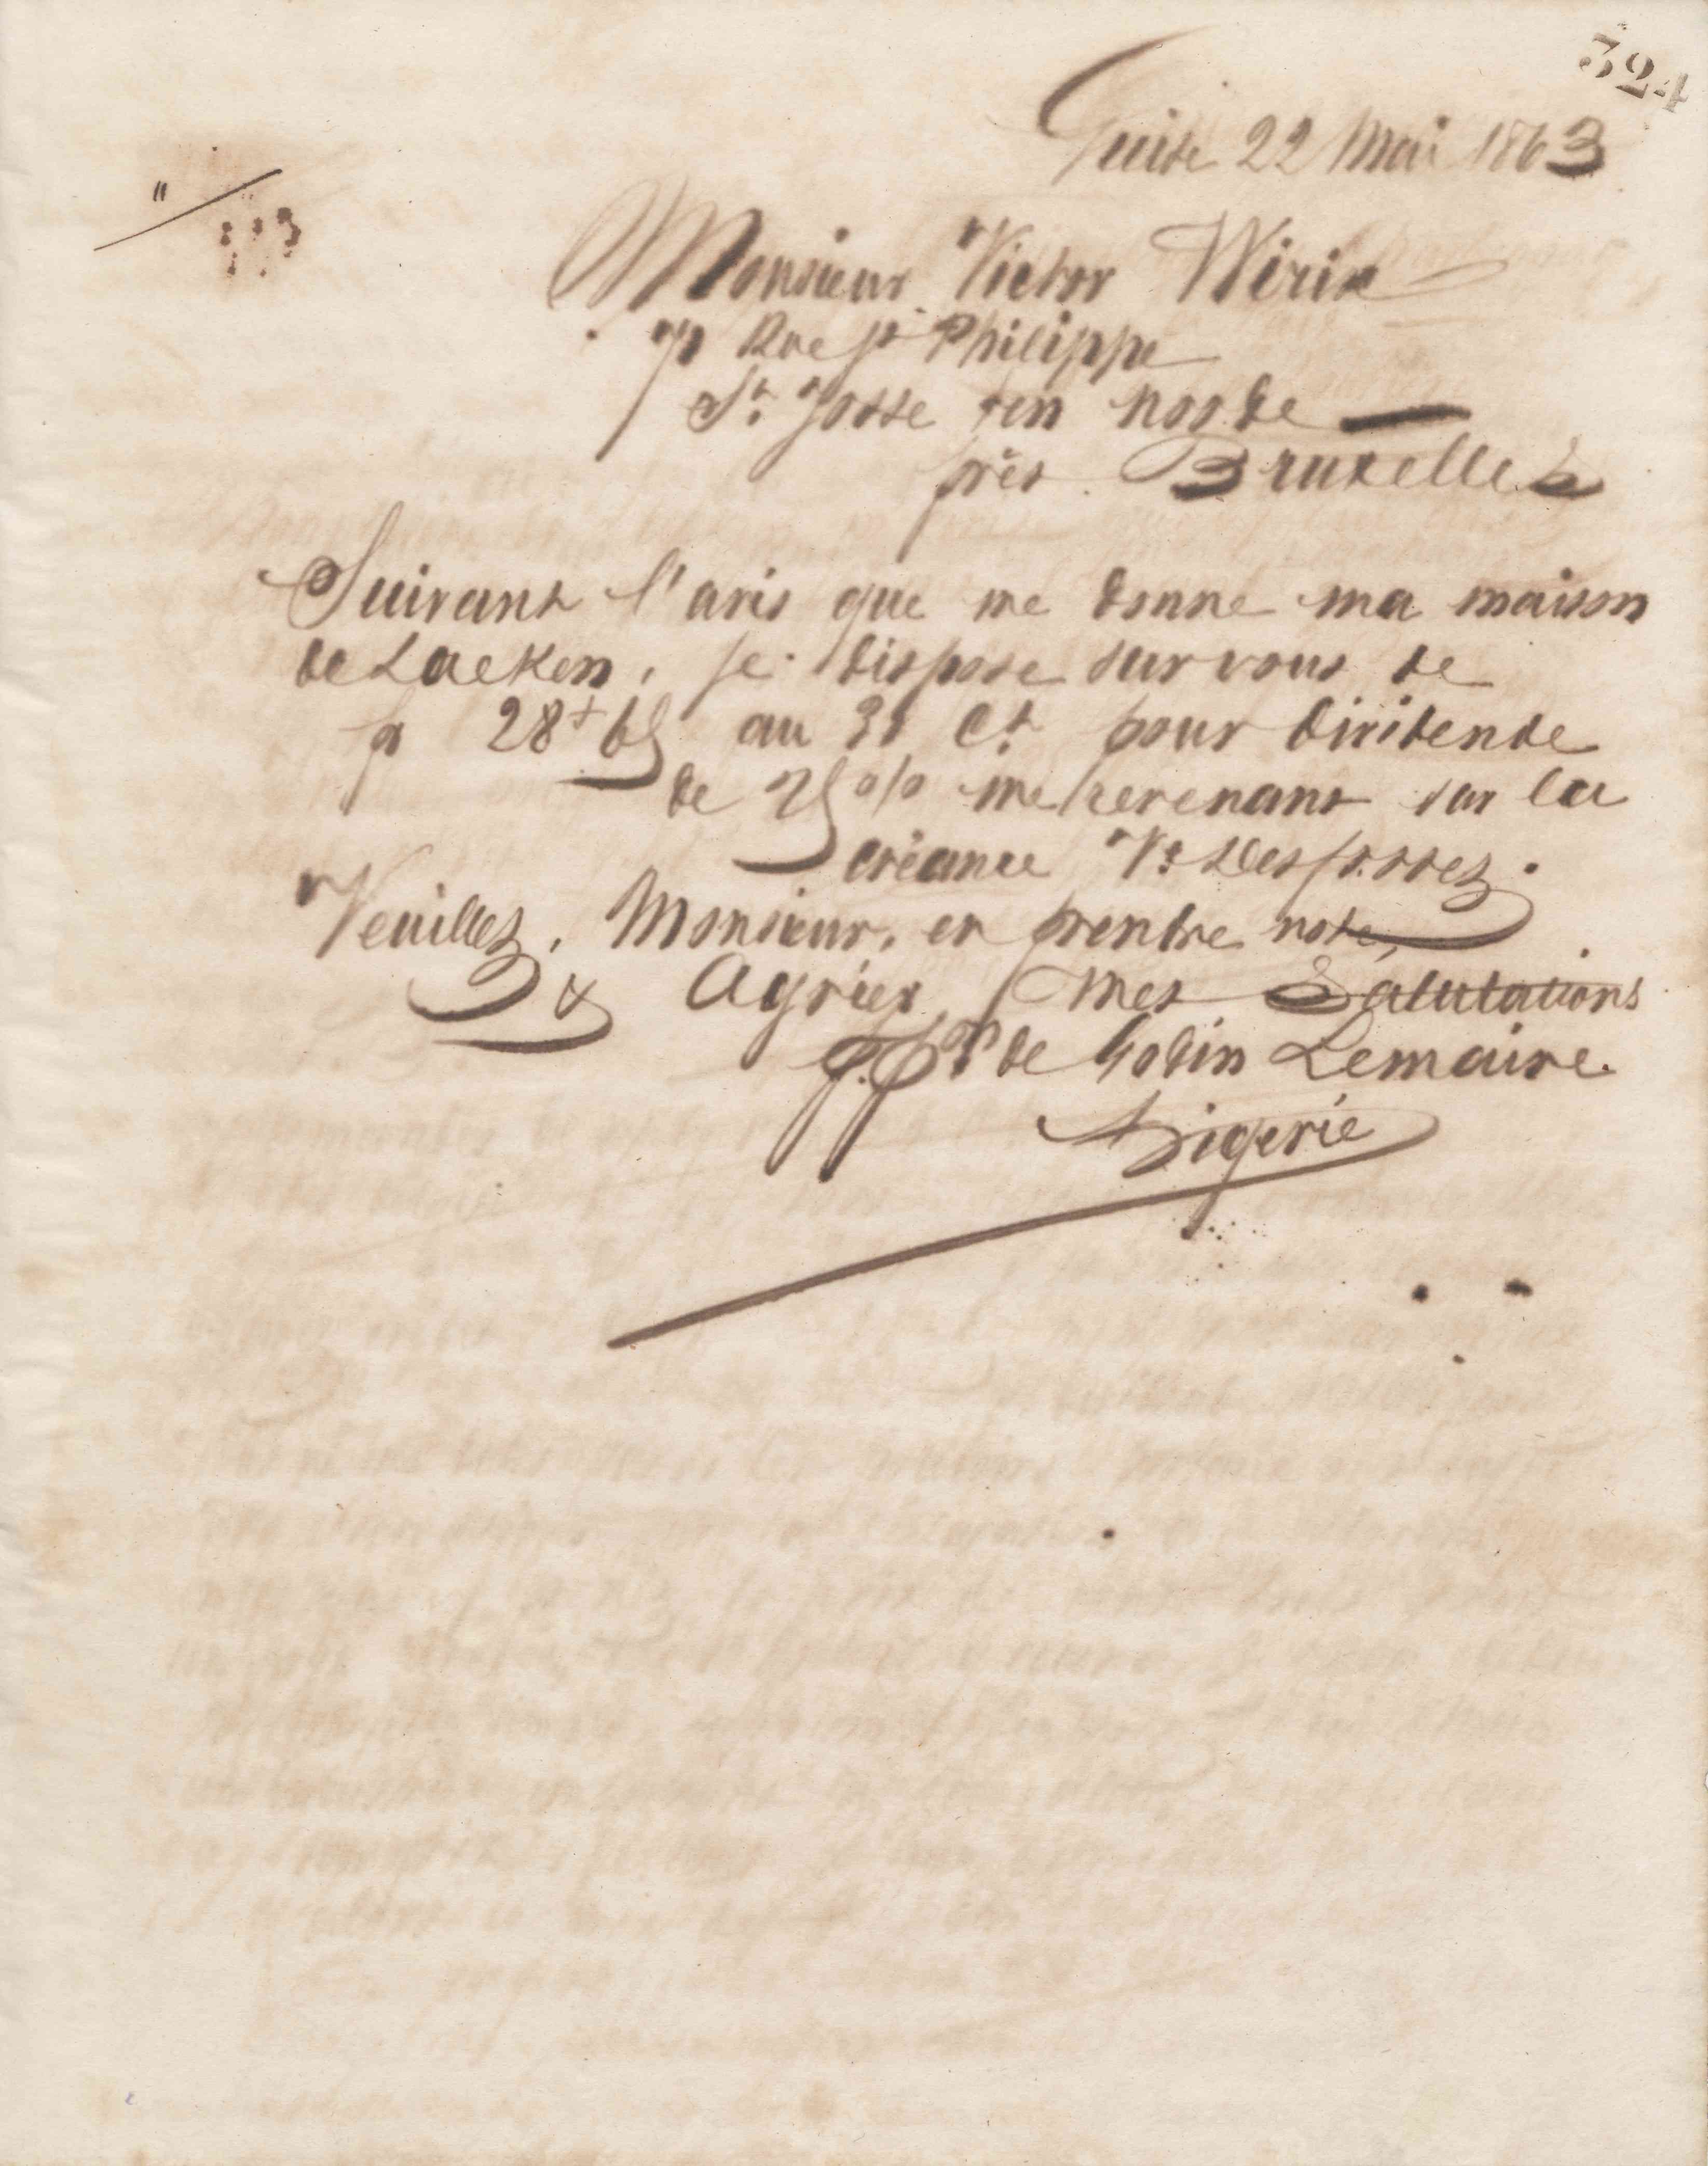 324
Guise 22 Mai 1863
Monsieur Victor Wirix
Rue St Philippe
St Josse ten noode
près Bruxelles
Suivant l'avis que me donne ma maison
de Laeken, je dispose sur vous de
f 28+65 au 31 Ct pour dividende
de 25 0/0 me revenant sur la
créance Ve Desfossez.
Veuillez, Monsieur, en prendre note,
& Agréer mes Salutations
P.Pon de Godin Lemaire.